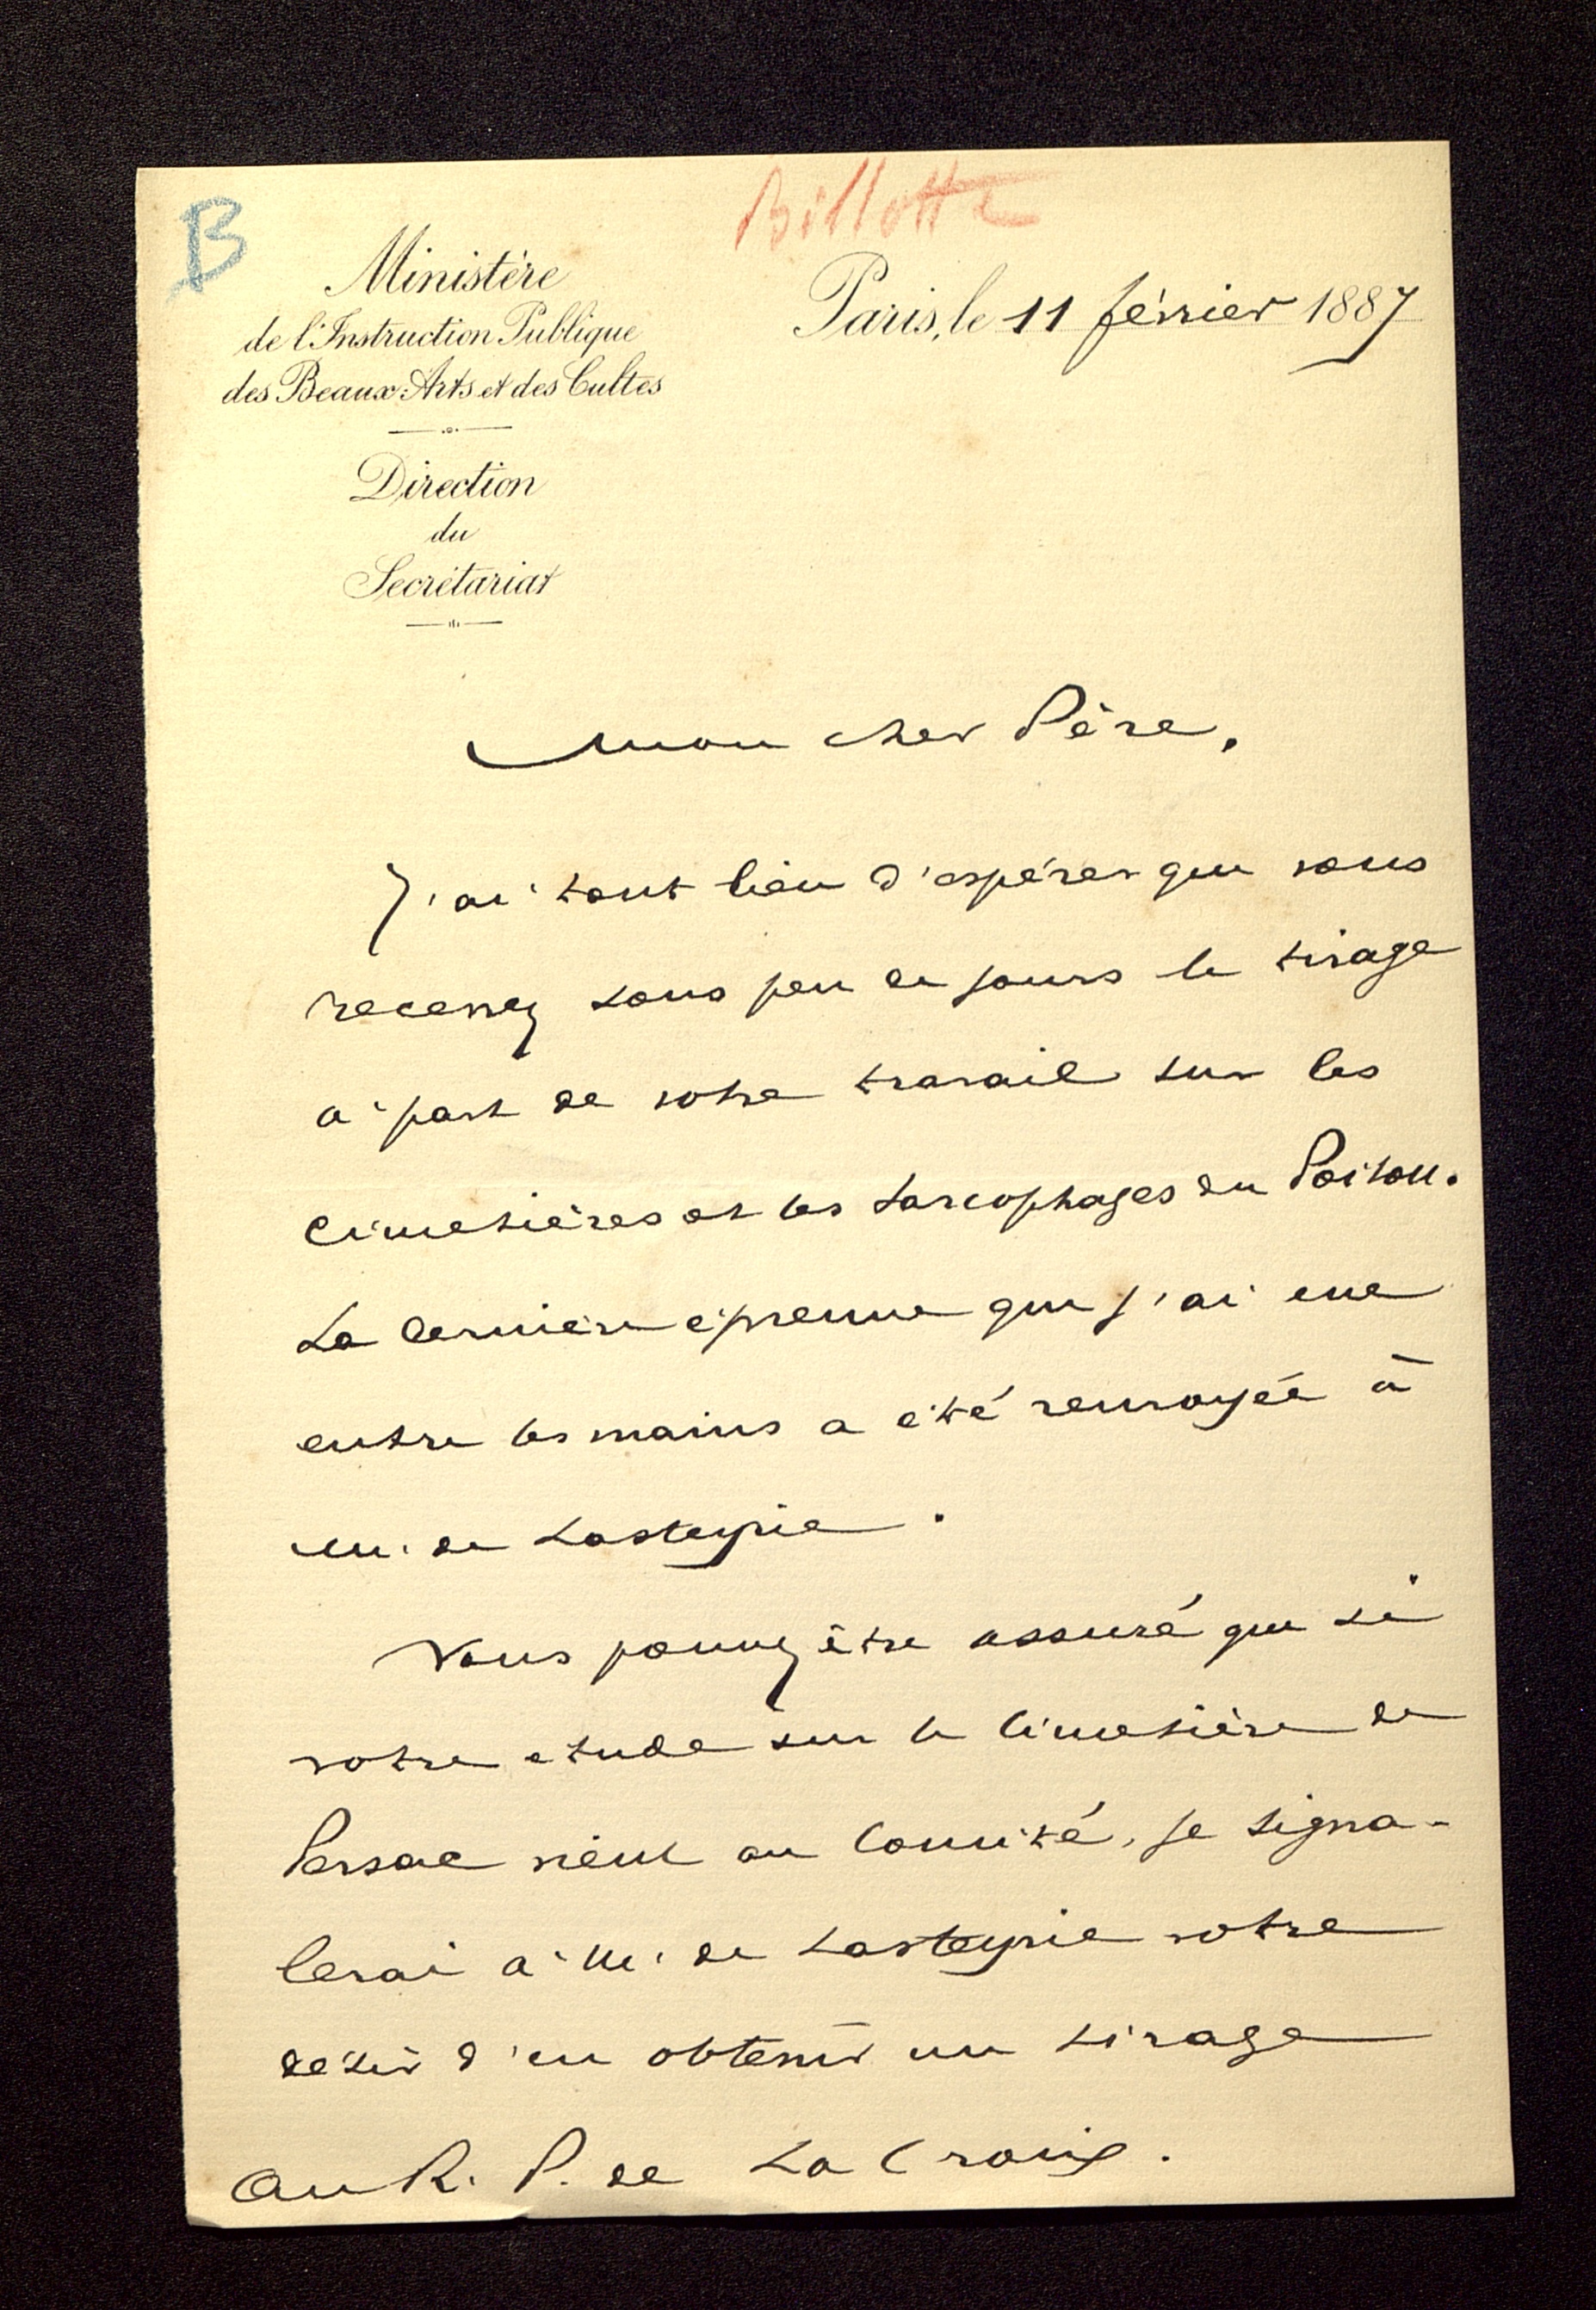 B
Billotte
Ministère
de l'Instruction Publique
des Beaux-Arts et des Cultes
Direction
du
Secrétariat
Paris, le 11 février 1887
Mon cher Père,
J'ai tout lieu d'espérer que vous
recevrez sous peu de jours le tirage
à part de votre travail sur les
cimetières et les sarcophages du Poitou.
La dernière épreuve que j'ai eue
entre les mains a été renvoyée à
M. de Lasteyrie.
Vous pouvez être assuré que si
votre etude sur le Cimetière de
Persac vient au Comité, je signa-
lerai à M. de Lasteyrie votre
désir d'en obtenir un tirage
Au R. P. de La Croix.